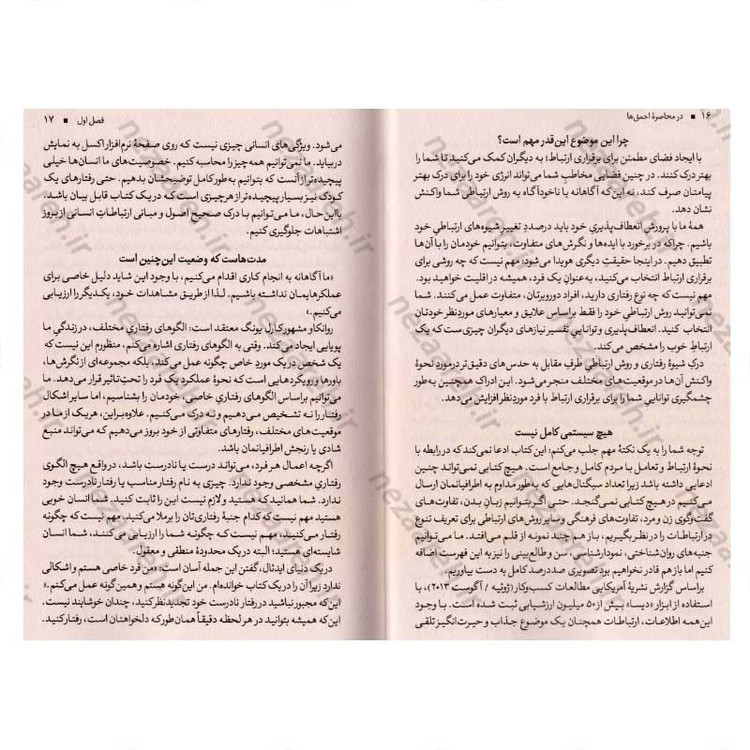 ۱۶ ■ در محاصرهٔ احمق‌ها
چرا این موضوع این‌قدر مهم است؟
با ایجاد فضای مطمئن برای برقراری ارتباط؛ به دیگران کمک می‌کنید تا شما را
بهتر درک کنند. در چنین فضایی مخاطب شما می‌تواند انرژی خود را برای درک بهتر
پیامتان صرف کند، نه این‌که آگاهانه یا ناخودآگاه به روش ارتباطی شما واکنش
نشان دهد.
همهٔ ما با پرورش انعطاف‌پذیریِ خود باید درصددِ تغییر شیوه‌های ارتباطیِ خود
باشیم. چراکه در برخورد با ایده‌ها و نگرش‌های متفاوت، بتوانیم خودمان را با آن‌ها
تطبیق دهیم. در اینجا حقیقتِ دیگری هویدا می‌شود: مهم نیست که چه روشی برای
برقراری ارتباط انتخاب می‌کنید، به‌عنوانِ یک فرد، همیشه در اقلیت خواهید بود.
مهم نیست که چه نوع رفتاری دارید، افراد دوروبرتان، متفاوت عمل می‌کنند. شما
نمی‌توانید روش ارتباطیِ خود را فقط براساس علایق و معیارهای موردنظر خودتان
انتخاب کنید. انعطاف‌پذیری و توانایی تفسیر نیازهای دیگران چیزی ست که یک
ارتباطِ خوب را مشخص می‌کند.
درکِ شیوهٔ رفتاری و روش ارتباطی طرفِ مقابل به حدس‌های دقیق‌تر درموردِ نحوهٔ
واکنش آن‌ها در موقعیت‌های مختلف منجر می‌شود. این ادراک همچنین به‌طور
چشمگیری توانایی شما را برای برقراری ارتباط با فرد موردنظر افزایش می‌دهد.
هیچ سیستمی کامل نیست
توجه شما را به یک نکتهٔ مهم جلب می‌کنم: این کتاب ادعا نمی‌کند که در رابطه با
نحوهٔ ارتباط و تعامل با مردم کامل و جامع است. هیچ کتابی نمی‌تواند چنین
ادعایی داشته باشد زیرا تعداد سیگنال‌هایی که به‌طور مداوم به اطرافیانمان ارسال
می‌کنیم در هیچ کتابی نمی‌گنجد. حتی اگر بتوانیم زبانِ بدن، تفاوت‌های
گفت‌وگوی زن و مرد، تفاوت‌های فرهنگی و سایر روش‌های ارتباطی برای تعریف تنوع
در ارتباطات را در نظر بگیریم، باز هم چند نمونه از قلم می‌افتد. ما می‌توانیم
جنبه‌های روان‌شناختی، نمودارشناسی، سن و طالع‌بینی را نیز به این فهرست اضافه
کنیم اما باز هم قادر نخواهیم بود تصویری صددرصد کامل به دست بیاوریم.
براساس گزارش نشریهٔ آمریکایی مطالعات کسب‌وکار (ژوئیه / آگوست ۲۰۱۳)، با
استفاده از ابزار «دیسا» بیش از ۵۰ میلیون ارزشیابی ثبت شده است. با وجود
این‌همه اطلاعات، ارتباطات همچنان یک موضوع جذاب و حیرت‌انگیز تلقی
فصل اول ■ ۱۷
می‌شود. ویژگی‌های انسانی چیزی نیست که روی صفحهٔ نرم‌افزار اکسل به نمایش
دربیاید. ما نمی‌توانیم همه‌چیز را محاسبه کنیم. خصوصیت‌های ما انسان‌ها خیلی
پیچیده‌تر از آنست که بتوانیم به‌طور کامل توضیحشان بدهیم. حتی رفتارهای یک
کودک نیز بسیار پیچیده‌تر از هرچیزی است که در یک کتاب قابل بیان باشد.
بااین‌حال، ما می‌توانیم با درک صحیح اصول و مبانی ارتباطاتِ انسانی از بروز
اشتباهات جلوگیری کنیم.
مدت‌هاست که وضعیت این‌چنین است
«ما آگاهانه به انجام کاری اقدام می‌کنیم، با وجود این شاید دلیل خاصی برای
عملکرهایمان نداشته باشیم. لذا از طریق مشاهدات خود، یکدیگر را ارزیابی
می‌کنیم.»
روانکاو مشهور کارل یونگ معتقد است: الگوهای رفتاریِ مختلف، در زندگیِ ما
پویایی ایجاد می‌کند. وقتی به الگوهای رفتاری اشاره می‌کنم، منظورم این نیست که
یک شخص در یک موردِ خاص چگونه عمل می‌کند، بلکه مجموعه‌ای از نگرش‌ها،
باورها و رویکردهایی است که نحوهٔ عملکردِ یک فرد را تحت‌تأثیر قرار می‌دهد. ما
می‌توانیم براساس الگوهای رفتاریِ خاصی، خودمان را بشناسیم، اما سایر اشکال
رفتار را نه تشخیص می‌دهیم و نه درک می‌کنیم. علاوه‌براین، هریک از ما در
موقعیت‌های مختلف، رفتارهای متفاوتی از خود بروز می‌دهیم که می‌تواند منبع
شادی یا رنجش اطرافیانمان باشد.
اگرچه اعمال هر فرد، می‌تواند درست یا نادرست باشد، درواقع هیچ الگوی
رفتاریِ مشخصی وجود ندارد. چیزی به نام رفتار مناسب یا رفتار نادرست وجود
ندارد. شما همانید که هستید و لازم نیست این را ثابت کنید. شما انسان خوبی
هستید مهم نیست که کدام جنبهٔ رفتاری‌تان را برملا می‌کنید، مهم نیست که چگونه
رفتار می‌کنید، مهم نیست که چگونه شما را ارزیابی می‌کنند، شما انسان
شایسته‌ای هستید؛ البته در یک محدودهٔ منطقی و معقول.
در یک دنیای ایدئال، گفتن این جمله آسان است: «من فرد خاصی هستم و اشکالی
ندارد زیرا آن را در یک کتاب خوانده‌ام. من این‌گونه هستم و همین‌گونه عمل می‌کنم.»
این‌که مجبور نباشید در رفتار نادرست خود تجدیدنظر کنید، چندان خوشایند نیست.
این‌که همیشه بتوانید در هر لحظه دقیقاً همان‌طور که دلخواهتان است، رفتار کنید.
nezaafeh.ir